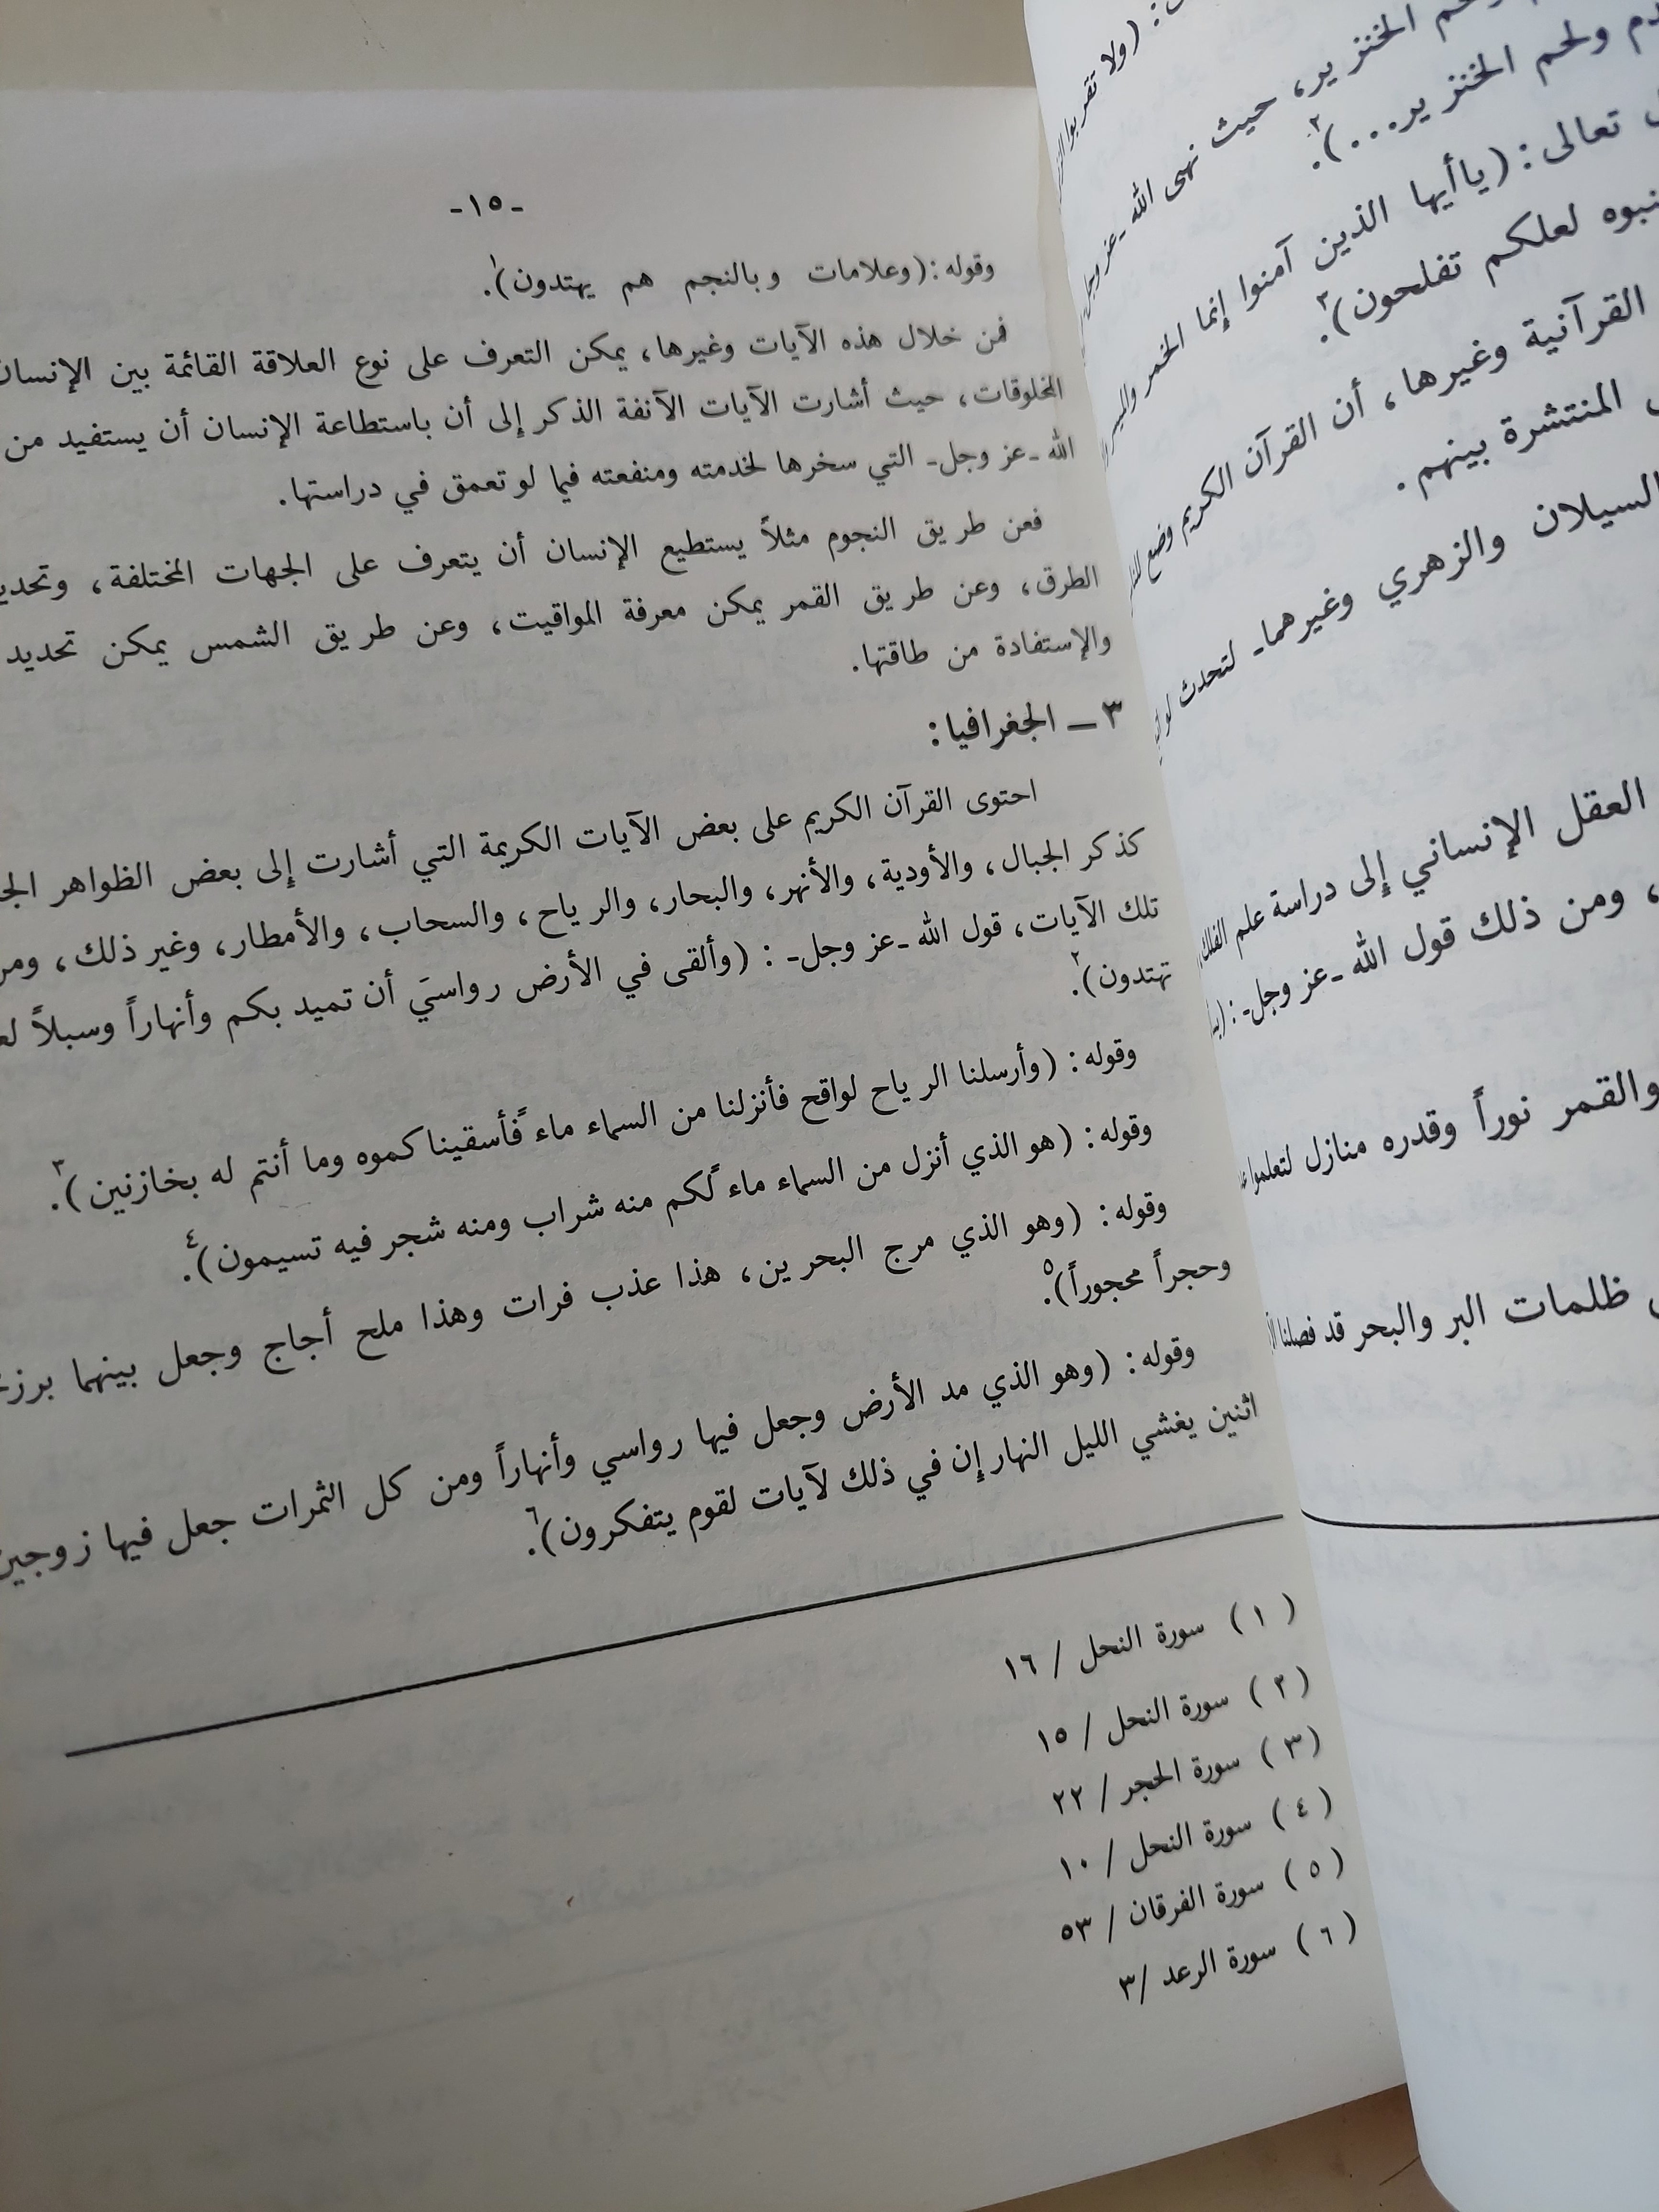 : (ولا تقربوا
الخنزير، حيث نهى الله -عز وجل-
ولحم الخنزير...)٢.
تعالى: (ياأيها الذين آمنوا إنما الخمر والميسر
لعلكم تفلحون)٣.
القرآنية وغيرها، أن القرآن الكريم وضع
المنتشرة بينهم.
السيلان والزهري وغيرهما- لتحدث
العقل الإنساني إلى دراسة علم الفلك
، ومن ذلك قول الله -عز وجل- :
والقمر نوراً وقدره منازل لتعلموا
ظلمات البر والبحر قد فصلنا
-١٥-
وقوله: (وعلامات وبالنجم هم يهتدون)١.
فمن خلال هذه الآيات وغيرها، يمكن التعرف على نوع العلاقة القائمة بين الإنسان
المخلوقات، حيث أشارت الآيات الآنفة الذكر إلى أن باستطاعة الإنسان أن يستفيد من
الله -عز وجل- التي سخرها لخدمته ومنفعته فيما لو تعمق في دراستها.
فعن طريق النجوم مثلاً يستطيع الإنسان أن يتعرف على الجهات المختلفة،
الطرق، وعن طريق القمر يمكن معرفة المواقيت، وعن طريق الشمس يمكن تحديد
والإستفادة من طاقتها.
٣ ـ الجغرافيا:
احتوى القرآن الكريم على بعض الآيات الكريمة التي أشارت إلى بعض الظواهر
كذكر الجبال، والأودية، والأنهر، والبحار، والرياح، والسحاب، والأمطار، وغير ذلك،
تلك الآيات، قول الله -عز وجل- : (وألقى في الأرض رواسيَ أن تميد بكم وأنهاراً وسبلاً
تهتدون)٢.
وقوله: (وأرسلنا الرياح لواقح فأنزلنا من السماء ماءً فأسقيناكموه وما أنتم له بخازنين)٣.
وقوله: (هو الذي أنزل من السماء ماءً لكم منه شراب ومنه شجر فيه تسيمون)٤.
وقوله: (وهو الذي مرج البحرين، هذا عذب فرات وهذا ملح أجاج وجعل بينهما
وحجراً محجوراً)٥.
وقوله: (وهو الذي مد الأرض وجعل فيها رواسي وأنهاراً ومن كل الثمرات جعل فيها زوجين
اثنين يغشي الليل النهار إن في ذلك لآيات لقوم يتفكرون)٦.
(١) سورة النحل / ١٦
(٢) سورة النحل / ١٥
(٣) سورة الحجر / ٢٢
(٤) سورة النحل / ١٠
(٥) سورة الفرقان / ٥٣
(٦) سورة الرعد /٣